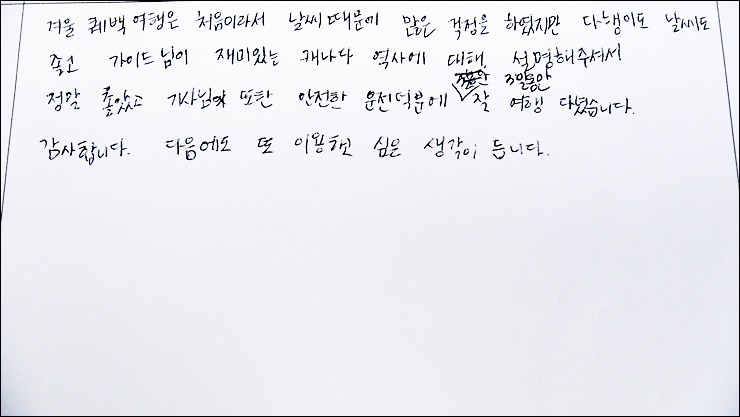 겨울 퀘백 여행은 처음이라서 날씨 때문에 많은 걱정을 하였지만 다행이도 날씨도
좋고 가이드님이 재미있는 캐나다 역사에 대해 설명해주셔서
정말 좋았고 기사님의 또한 안전한 운전덕분에 잘 3일동안 여행 다녔습니다.
감사합니다. 다음에도 또 이용하고 싶은 생각이 듭니다.